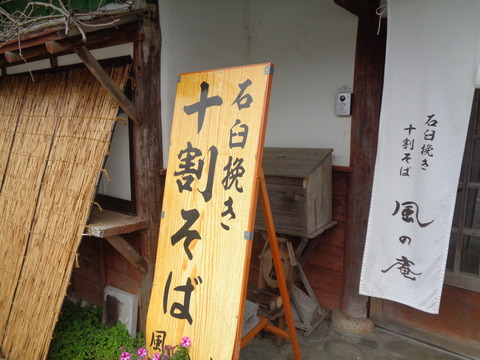 石臼挽き
十割そば
風
石臼挽き
十割そば
風の庵